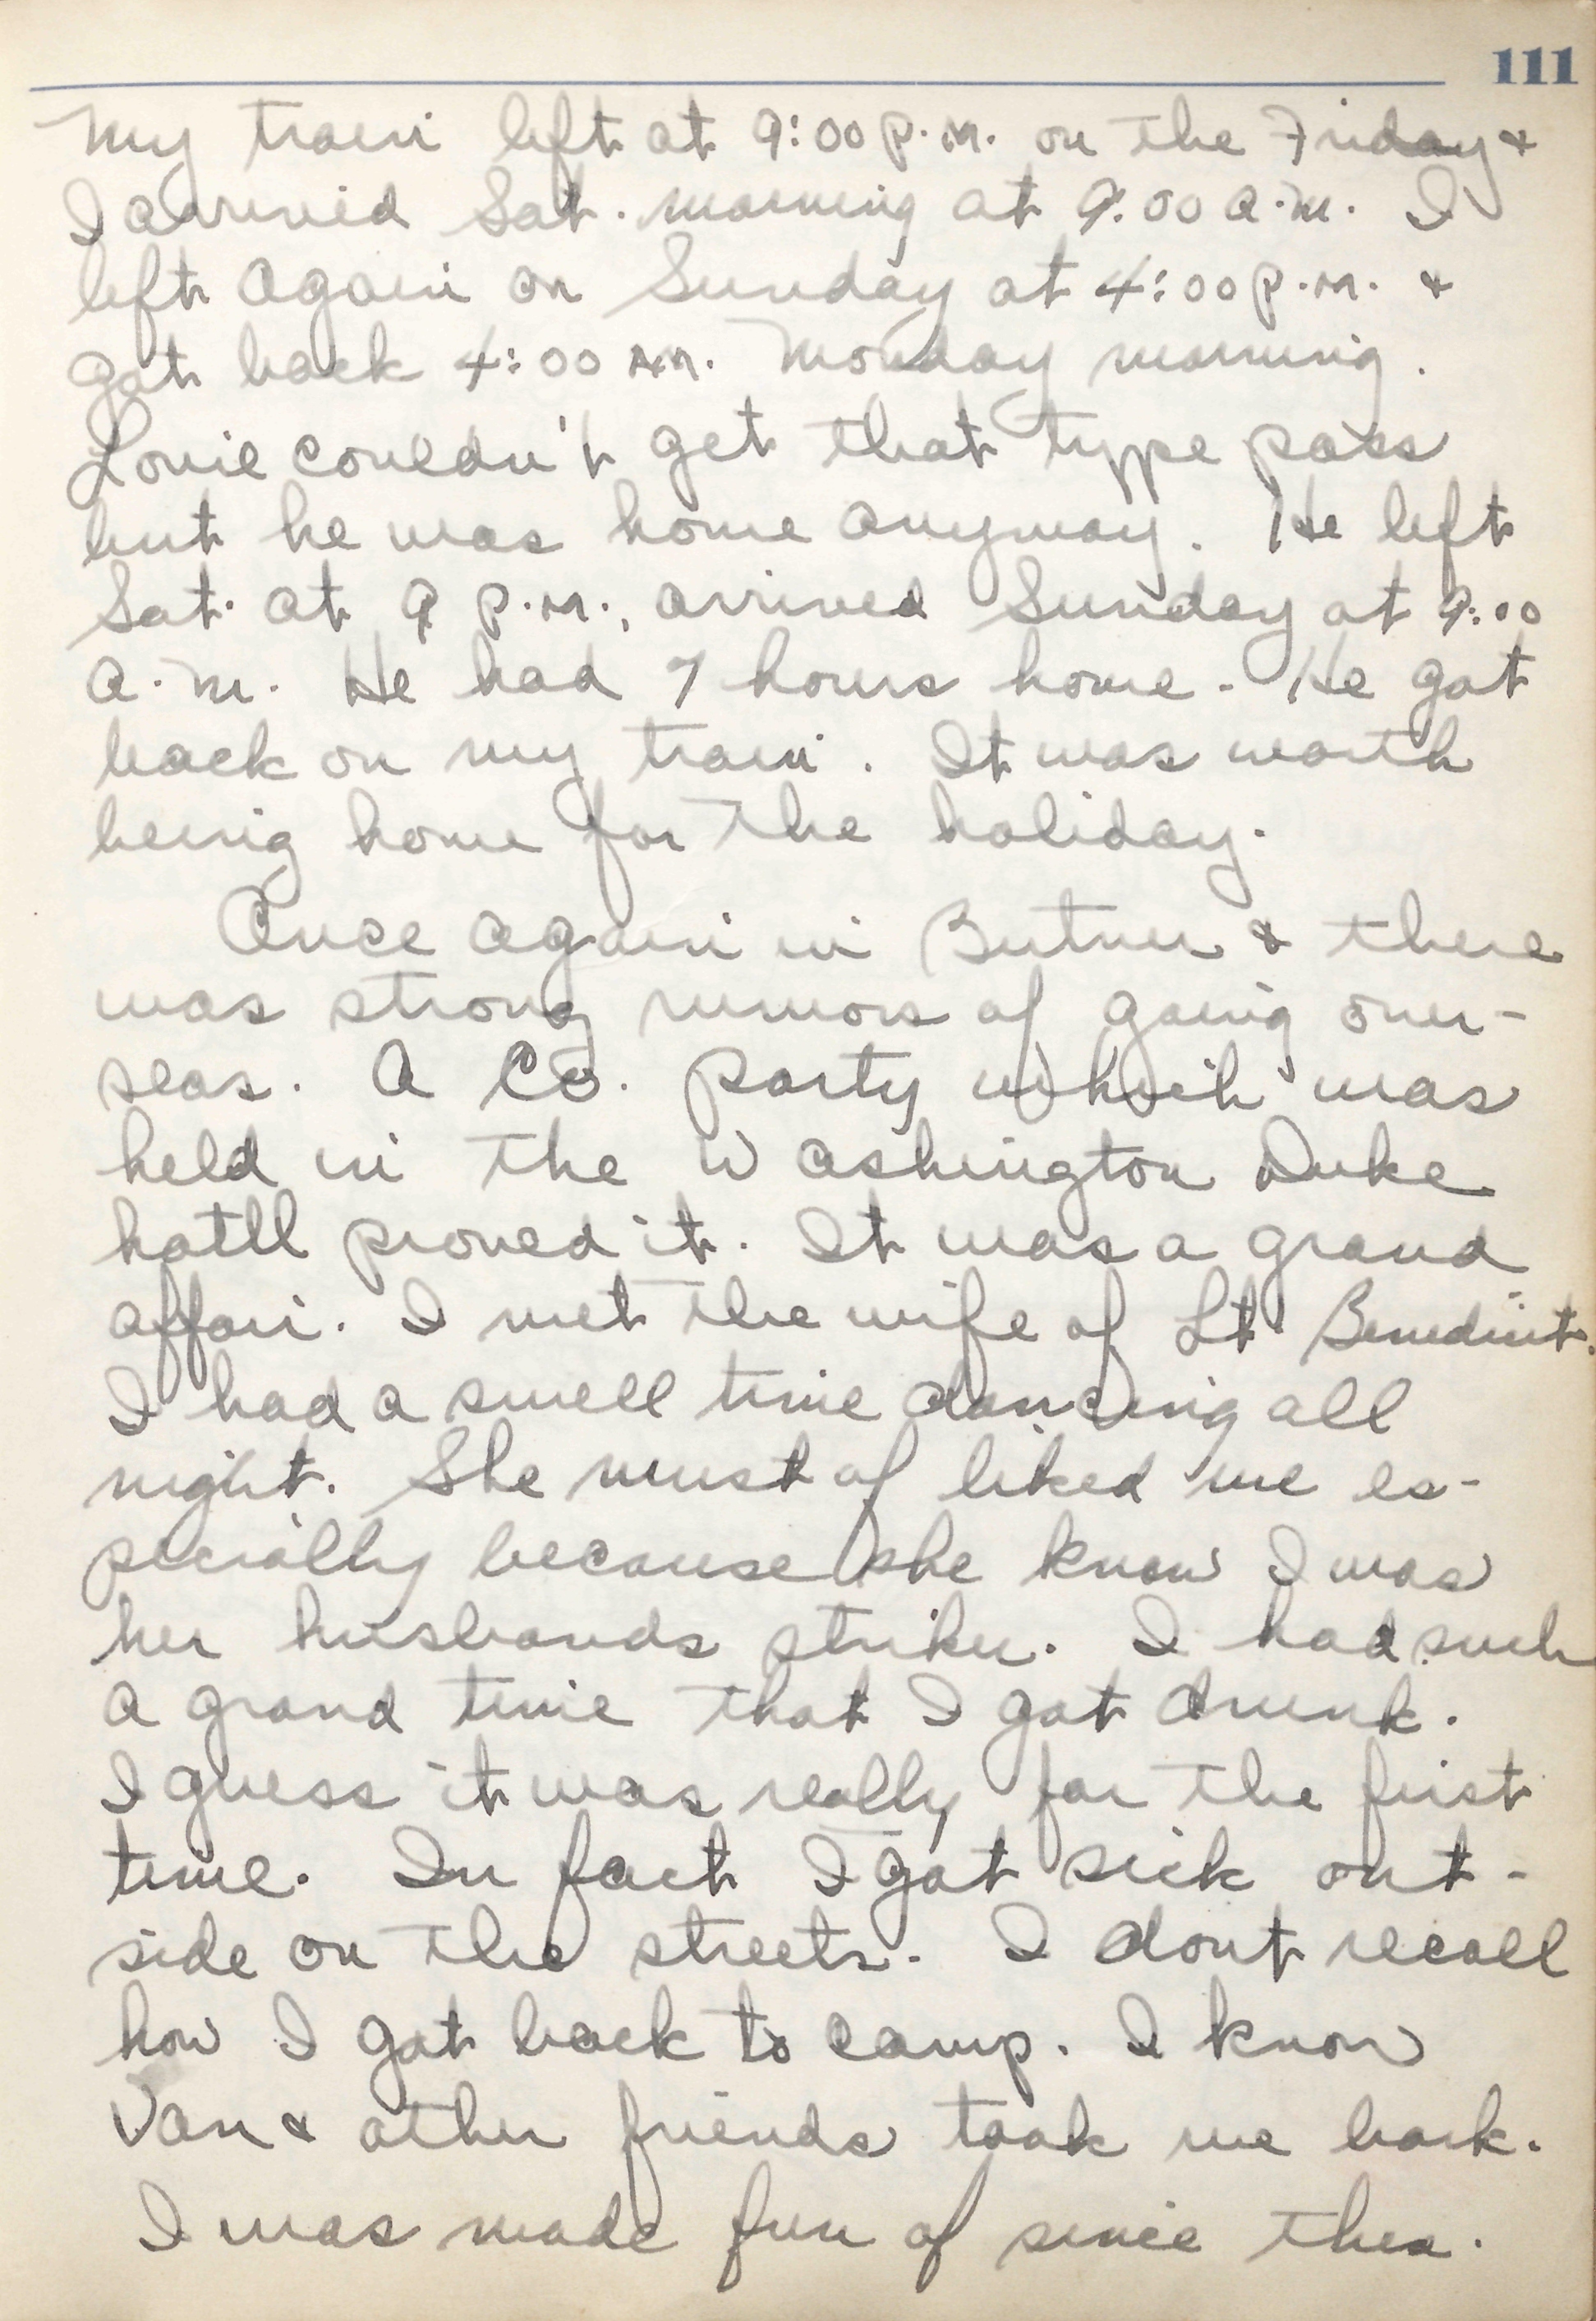 111
My train left at 9:00 P.M. on the Friday &
I arrived Sat. morning at 9:00 a.m. I
left again on Sunday at 4:00 P.M. &
got back 4:00 A.M. Monday morning.
Louie couldn't get that type pass
but he was home anyway. He left
Sat. at 9 P.M., arrived Sunday at 9:00
a.m. He had 7 hours home. He got
back on my train. It was worth
being home for the holiday.
Once again in Butner & there
was strong rumors of going over-
seas. A Co. party which was
held in the Washington Duke
hotll proved it. It was a grand
affair. I met the wife of Lt. Benedict.
I had a swell time dancing all
night. She must of liked me es-
pecially because she know I was
her husbands striker. I had such
a grand time that I got drunk.
I guess it was really for the first
time. In fact I got sick out-
side on the streets. I dont recall
how I got back to camp. I know
Van & other friends took me back.
I was made fun of since then.